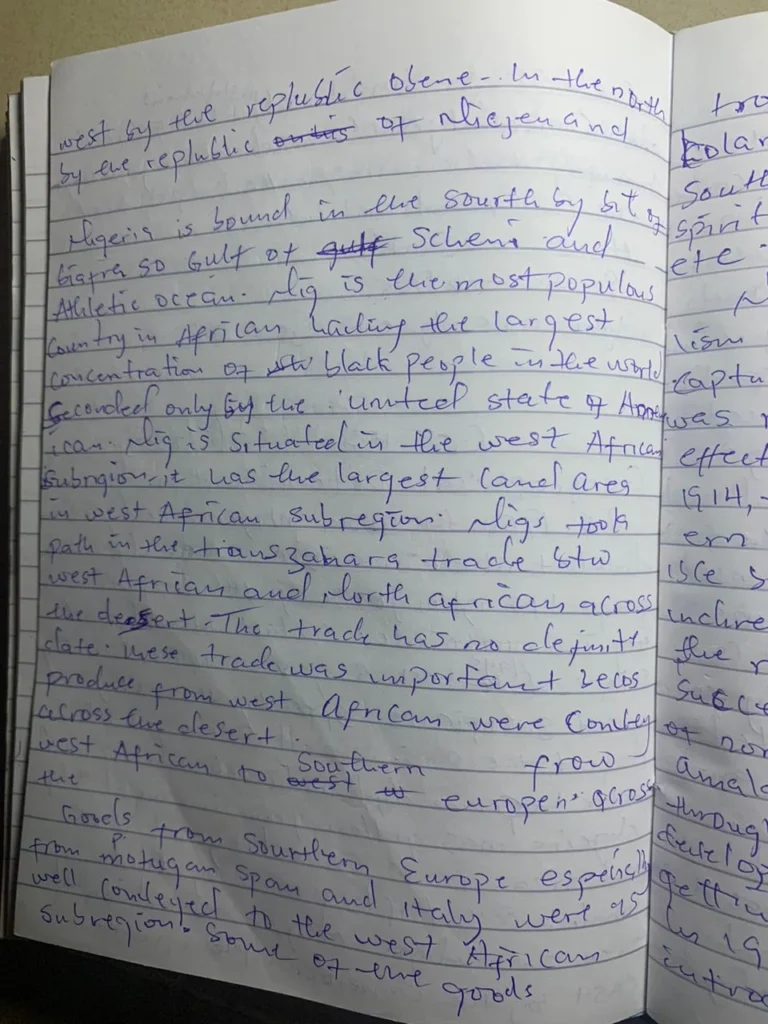 west by the replublic Obene - In the north
by the replublic of Niegen and
Nigeria is bound in the sourth by bit of
biafra so Gulf of gulf Scheni and
Athletic ocean. Nig is the most populous
country in African hading the largest
concentration of black people in the world
Seconded only by the united state of Amer
ican. Nig is situated in the west African
Subrgion. it has the largest land area
in west African subregion. Nigs took
path in the transzahara trade btw
west African and North african across
the desert. The trade has no definitt
date. These trade was important becos
produce from west African were Convey
across the desert.
west African to Southern from
the west europen. across
Goods from Sourthern Europe especially
from potugan span and italy were as
well Conveyed to the west African
subregion. Some of the goods
tro
kolar
South
spirit
etc.
N
lism
captu
was
effect
1914,
ern
isce s
inclire
the r
Succe
of nor
amalg
through
develop
gettin
In 19
introd